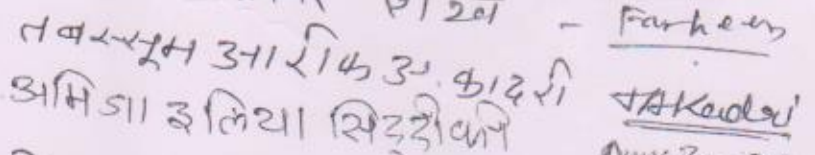 - Farheen
तबस्सूम आरीफ अ. कादरी TAKadri
अमिना इलिया सिद्दीकी